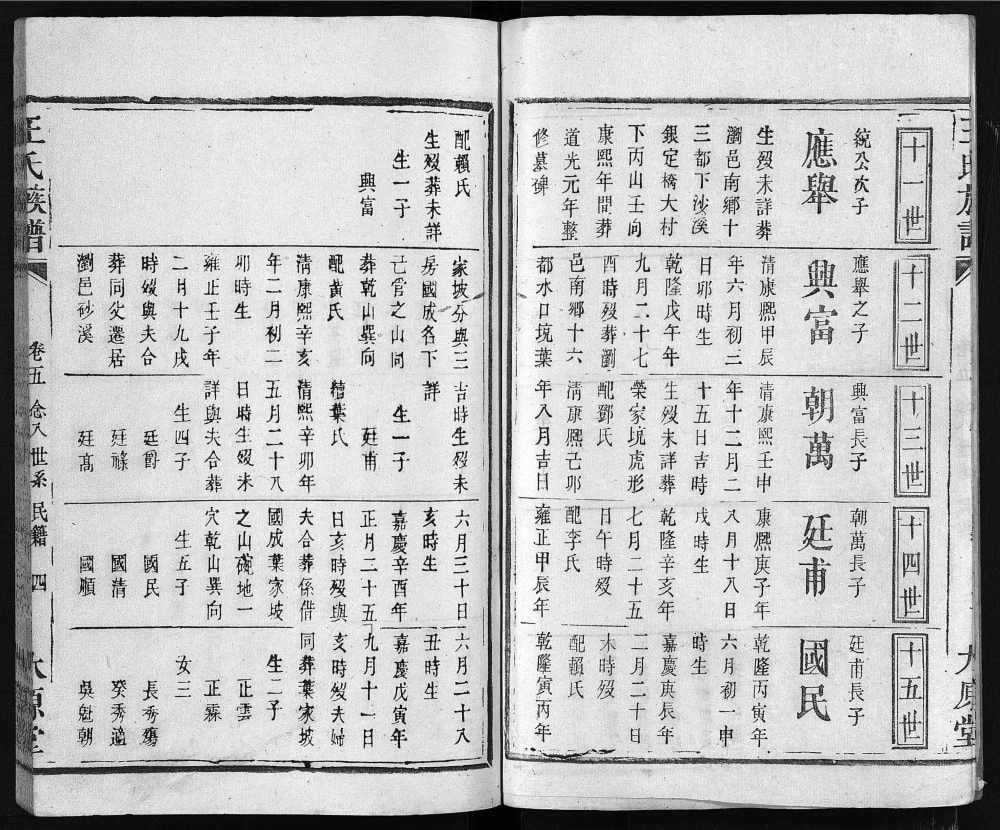 王氏族譜
大原堂
十一世
統公次子
應舉
生歿未詳葬
瀏邑南鄉十
三都下沙溪
銀定橋大村
下丙山壬向
康熙年間葬
道光元年整
修墓碑
配賴氏
生歿葬未詳
生一子
興富
十二世
應舉之子
興富
清康熙甲辰
年六月初三
日卯時生
乾隆戊午年
九月二十七
酉時歿葬瀏
邑南鄉十六
都水口境葉
家坡分與三
房國成名下
己管之山同
葬乾山巽向
配黃氏
清康熙辛亥
年二月初二
卯時生
雍正壬子年
二月十九戌
時歿與夫合
葬同父遷居
瀏邑砂溪
十三世
興富長子
朝萬
清康熙壬申
年十二月二
十五日吉時
生歿未詳葬
榮家境虎形
配鄧氏
清康熙己卯
年八月吉日
吉時生歿未
詳
生一子
廷甫
繼葉氏
清熙辛卯年
五月二十八
日時生歿未
詳與夫合葬
生四子
廷爵
廷祿
廷高
十四世
朝萬長子
廷甫
康熙庚子年
八月十八日
戌時生
乾隆辛亥年
七月二十五
日午時歿
配李氏
雍正甲辰年
六月三十日
亥時生
嘉慶辛酉年
正月二十五
日亥時歿與
夫合葬係借
國成葉家坡
之山碗地一
穴乾山巽向
生五子
國民
國清
國順
十五世
廷甫長子
國民
乾隆丙寅年
六月初一申
時生
嘉慶庚辰年
二月二十日
未時歿
配賴氏
乾隆寅丙年
六月二十八
丑時生
嘉慶戊寅年
九月十一日
亥時歿夫婦
同葬葉家坡
生二子
正雲
正霖
女三
長秀
癸秀適
吳魁朝
王氏族譜
卷五 念八世系 民籍 四
太原堂